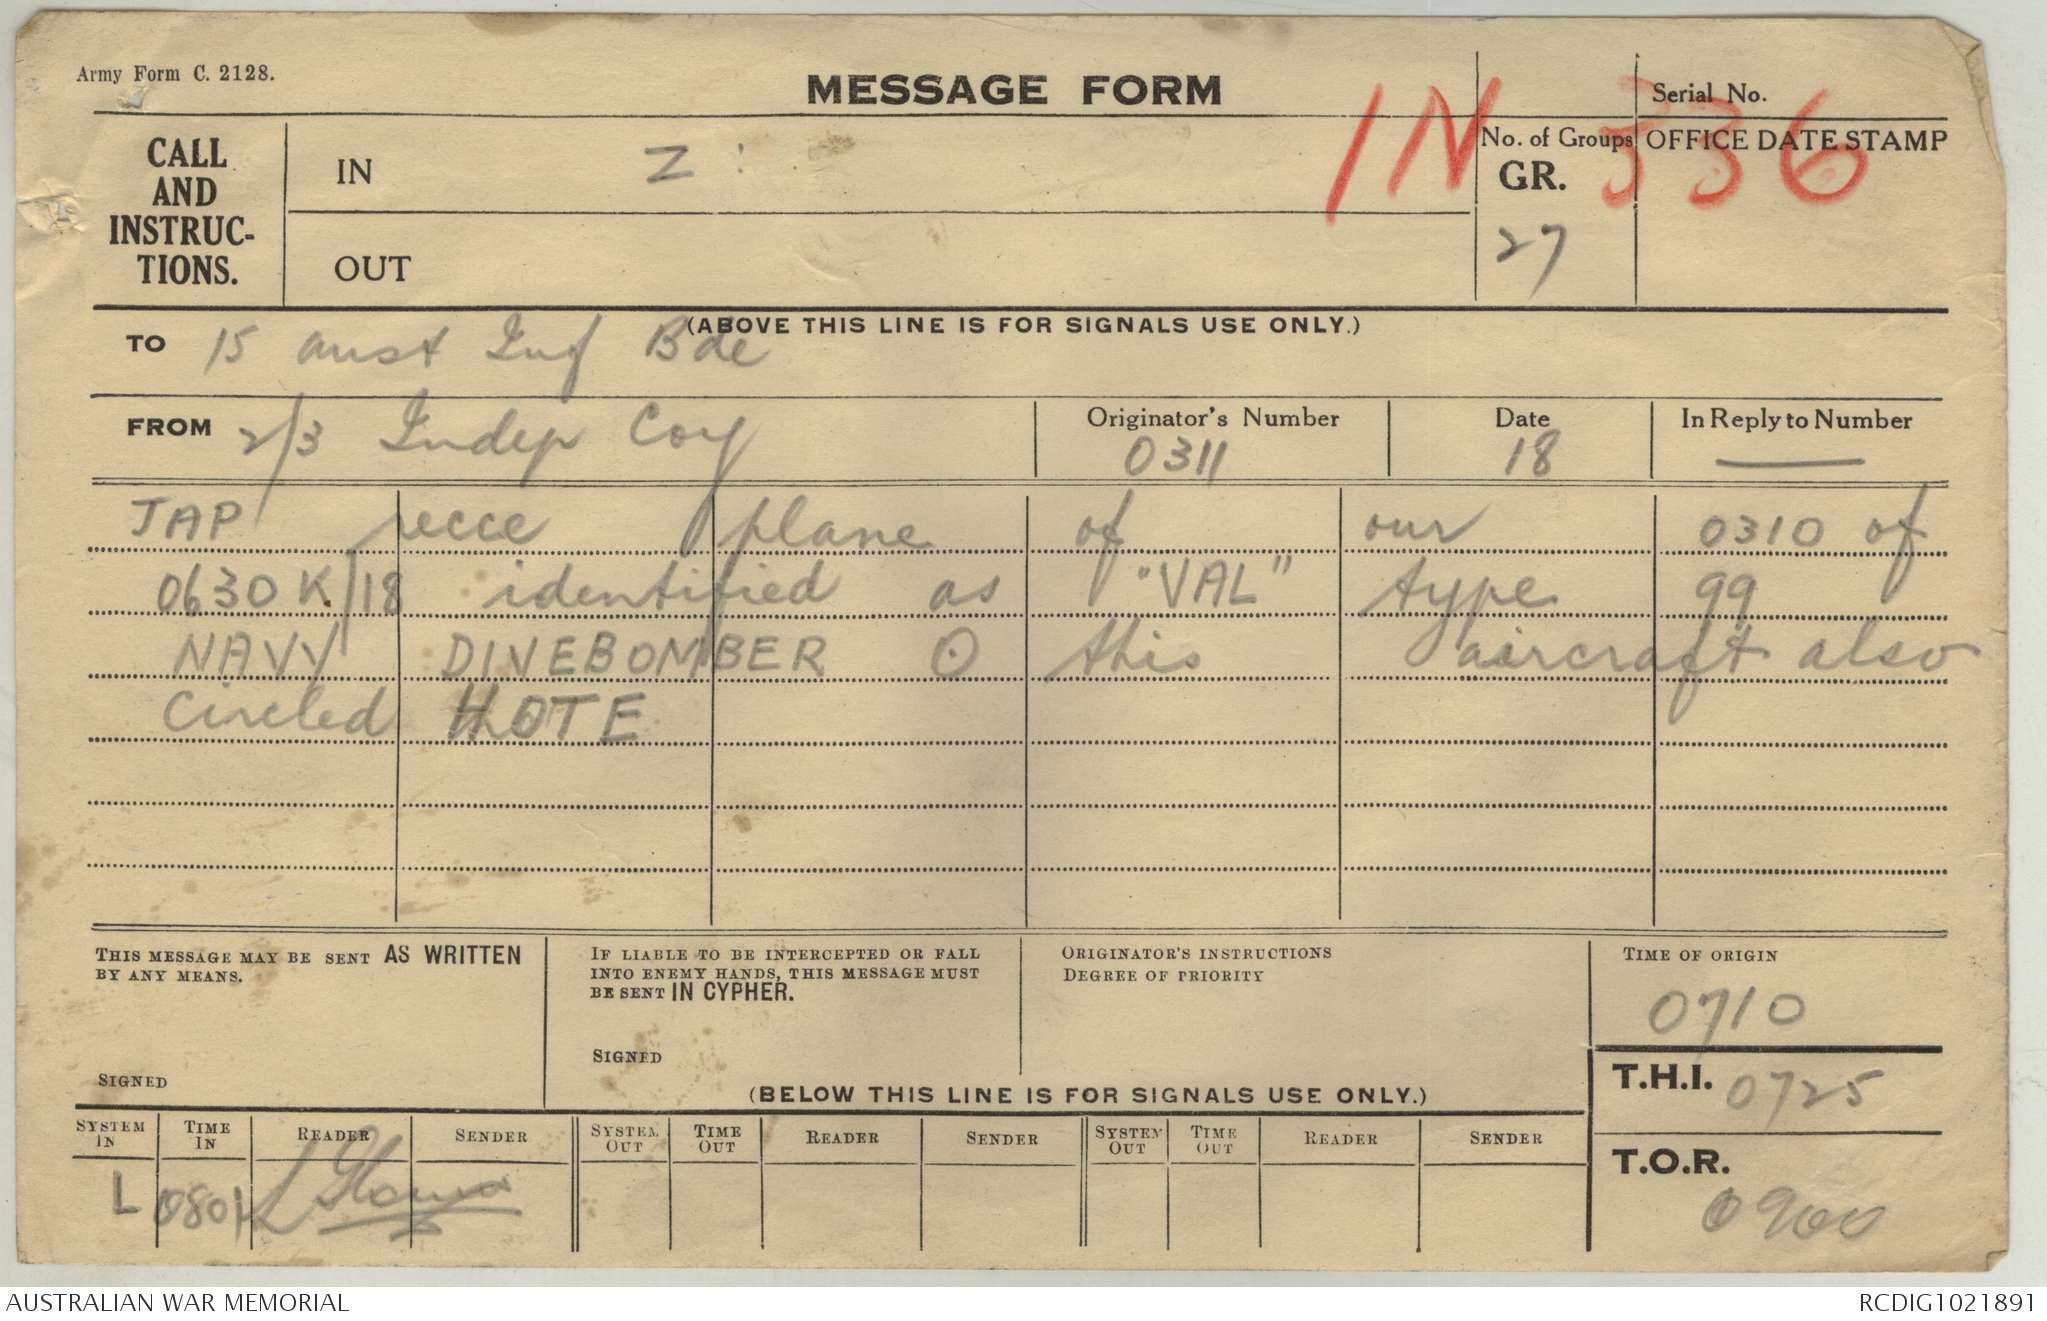 Army Form C. 2128.
MESSAGE FORM
Serial No.
IN 336
CALL AND INSTRUC-TIONS.
IN Z :
No. of Groups GR. 27
OFFICE DATE STAMP
OUT
(ABOVE THIS LINE IS FOR SIGNALS USE ONLY.)
TO 15 Aust Inf Bde
FROM 2/3 Indep Coy
Originator's Number 0311
Date 18
In Reply to Number —
JAP recce plane of our 0310 of
0630 K/18 identified as "VAL" type 99
NAVY DIVEBOMBER O this aircraft also
circled HOTE
THIS MESSAGE MAY BE SENT AS WRITTEN BY ANY MEANS.
SIGNED
IF LIABLE TO BE INTERCEPTED OR FALL INTO ENEMY HANDS, THIS MESSAGE MUST BE SENT IN CYPHER.
SIGNED
ORIGINATOR'S INSTRUCTIONS
DEGREE OF PRIORITY
TIME OF ORIGIN
0710
(BELOW THIS LINE IS FOR SIGNALS USE ONLY.)
T.H.I. 0725
T.O.R. 0900
SYSTEM IN TIME IN READER SENDER SYSTEM OUT TIME OUT READER SENDER SYSTEM OUT TIME OUT READER SENDER
L 0801
AUSTRALIAN WAR MEMORIAL RCDIG1021891